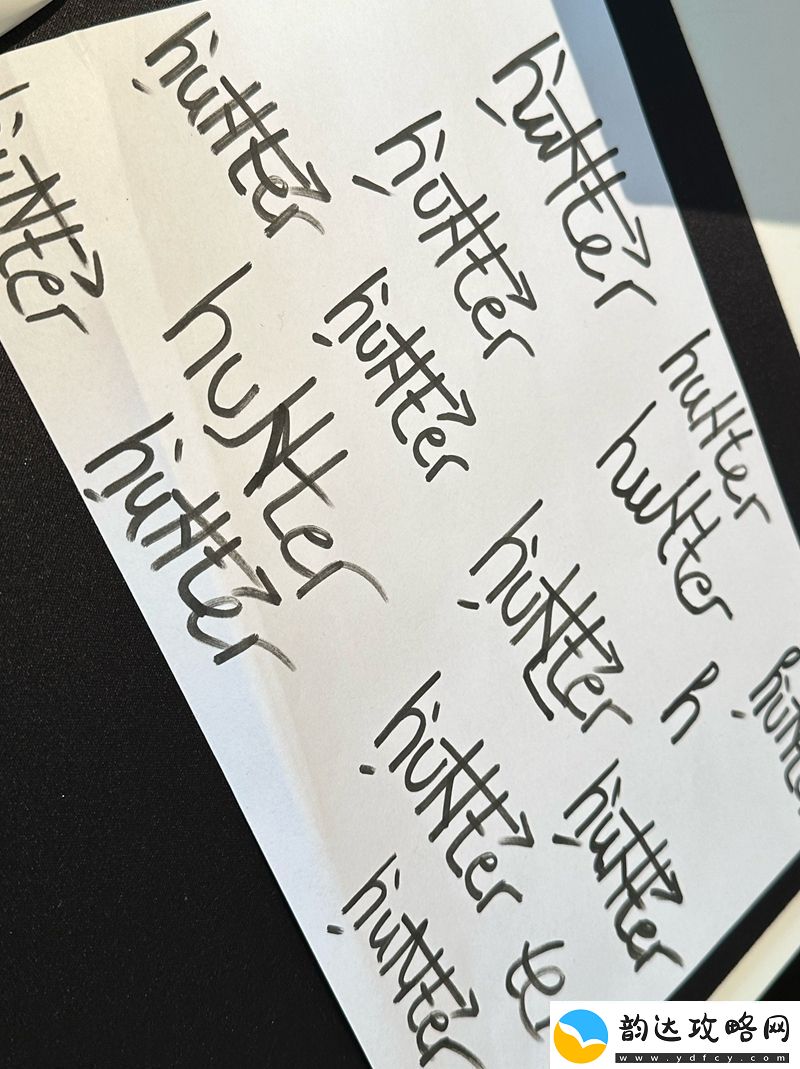 hunter
hunter
hunter
hunter
hunter
hunter
hunter
hunter
hunter
hunter
hunter
h
hunter
hunter
hunter
ter
韵达攻略网
www.ydfcy.com